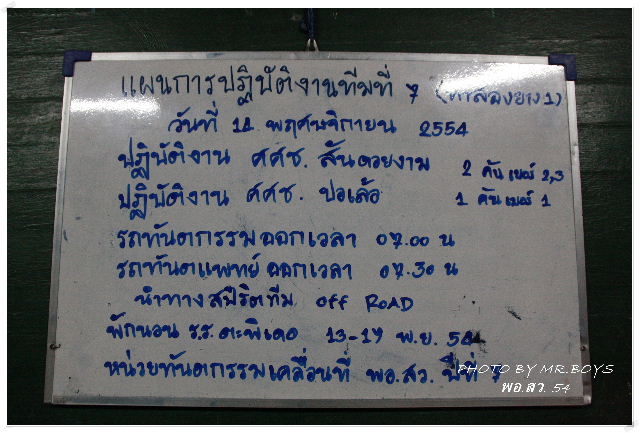 แผนการปฏิบัติงานทีมที่ 7 (ท่าสองยาง 1)
วันที่ 14 พฤศจิกายน 2554
ปฏิบัติงาน ศศช. สันดอยงาม 2 คัน เบอร์ 2,3
ปฏิบัติงาน ศศช. ปอเล้อ 1 คัน เบอร์ 1
รถทันตกรรมออกเวลา 07.00 น
รถทันตแพทย์ออกเวลา 07.30 น
นำทาง สปิริตทีม off RoAD
พักนอน ร.ร. ตะพิเดอ 13-17 พ.ย. 54
หน่วยทันตกรรมเคลื่อนที่ พอ.สว. ปีที่
PHOTO BY MR.BOYS
พอ.สว. 54